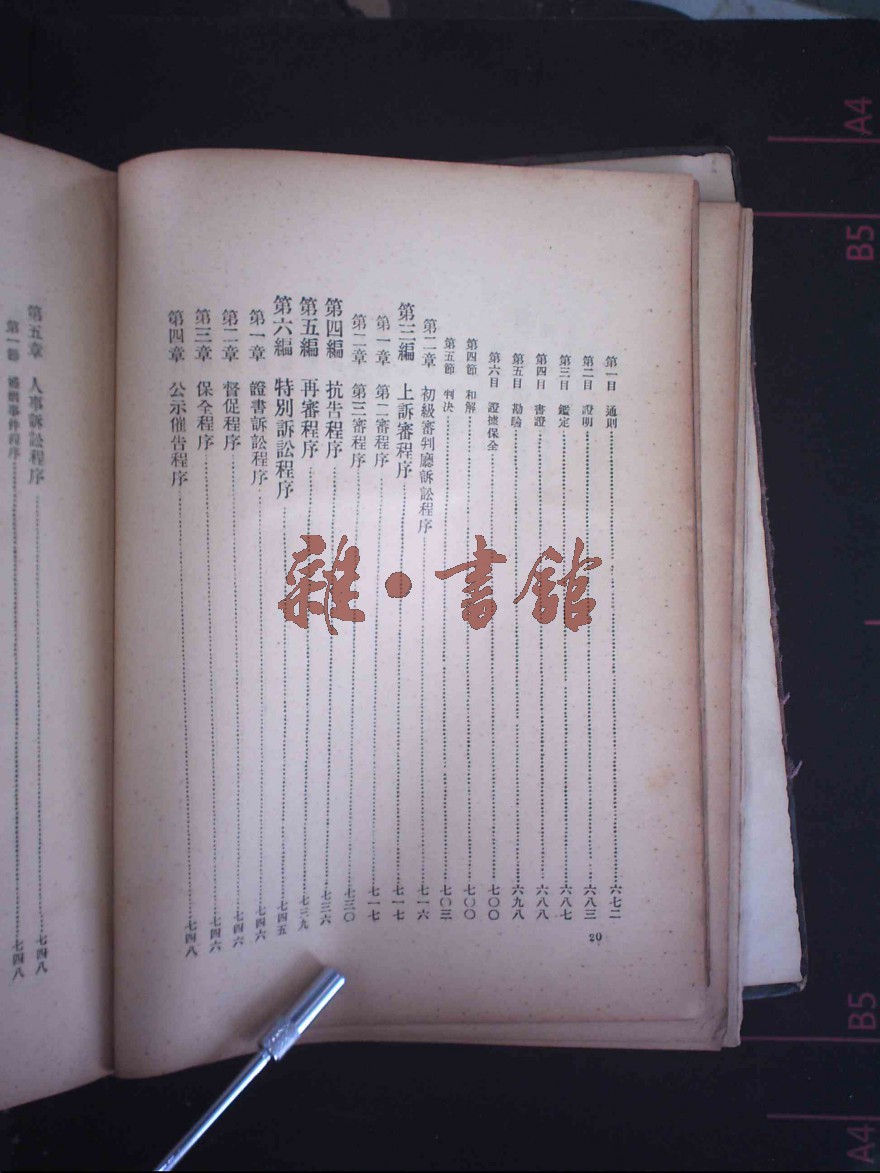 第一目 通則 六七二
第二目 證明 六八三
第三目 鑑定 六八七
第四目 書證 六八八
第五目 勘驗 六九八
第六目 證據保全 七〇〇
第四節 和解 七〇〇
第五節 判決 七〇三
第二章 初級審判廳訴訟程序 七一六
第三編 上訴審程序 七一七
第一章 第二審程序 七一七
第二章 第三審程序 七三〇
第四編 抗告程序 七三六
第五編 再審程序 七三九
第六編 特別訴訟程序 七四五
第一章 證書訴訟程序 七四六
第二章 督促程序 七四六
第三章 保全程序 七四六
第四章 公示催告程序 七四八
20
第五章 人事訴訟程序 七四八
第一節 婚姻事件程序 七四八
雜·書館
A4
B5
B5
A4